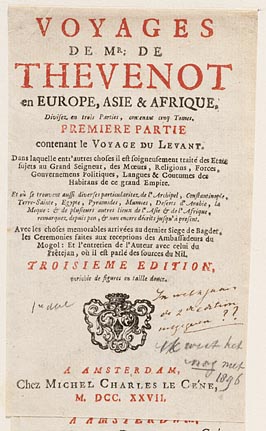 VOYAGES
DE MR. DE
THEVENOT
en EUROPE, ASIE & AFRIQUE,
Divisez en trois Parties, contenant cinq Tomes.
PREMIERE PARTIE
contenant le VOYAGE DU LEVANT.
Dans laquelle entr'autres choses il est soigneusement traité des Etats
sujets au Grand Seigneur, des Mœurs, Religions, Forces,
Gouvernemens Politiques, Langues & Coutumes des
Habitans de ce grand Empire.
Et où se trouvent aussi diverses particularitez de l'Archipel, Constantinople,
Terre-Sainte, Egypte, Pyramides, Mumies, Deserts d'Arabie, la
Meque: & de plusieurs autres lieux de l'Asie & de l'Afrique,
remarquez depuis peu, & non encore décrits jusqu'à present.
Avec les choses memorables arrivées au dernier Siege de Bagdet,
les Ceremonies faites aux receptions des Ambassadeurs du
Mogol: Et l'entretien de l'Auteur avec celui du
Prêtejan, où il est parlé des sources du Nil.
TROISIEME EDITION,
enrichie de figures en taille douce.
het
nog met
1896
A AMSTERDAM,
Chez MICHEL CHARLES LE CÉNE,
M. DCC. XXVII.
A AMSTERDAM,